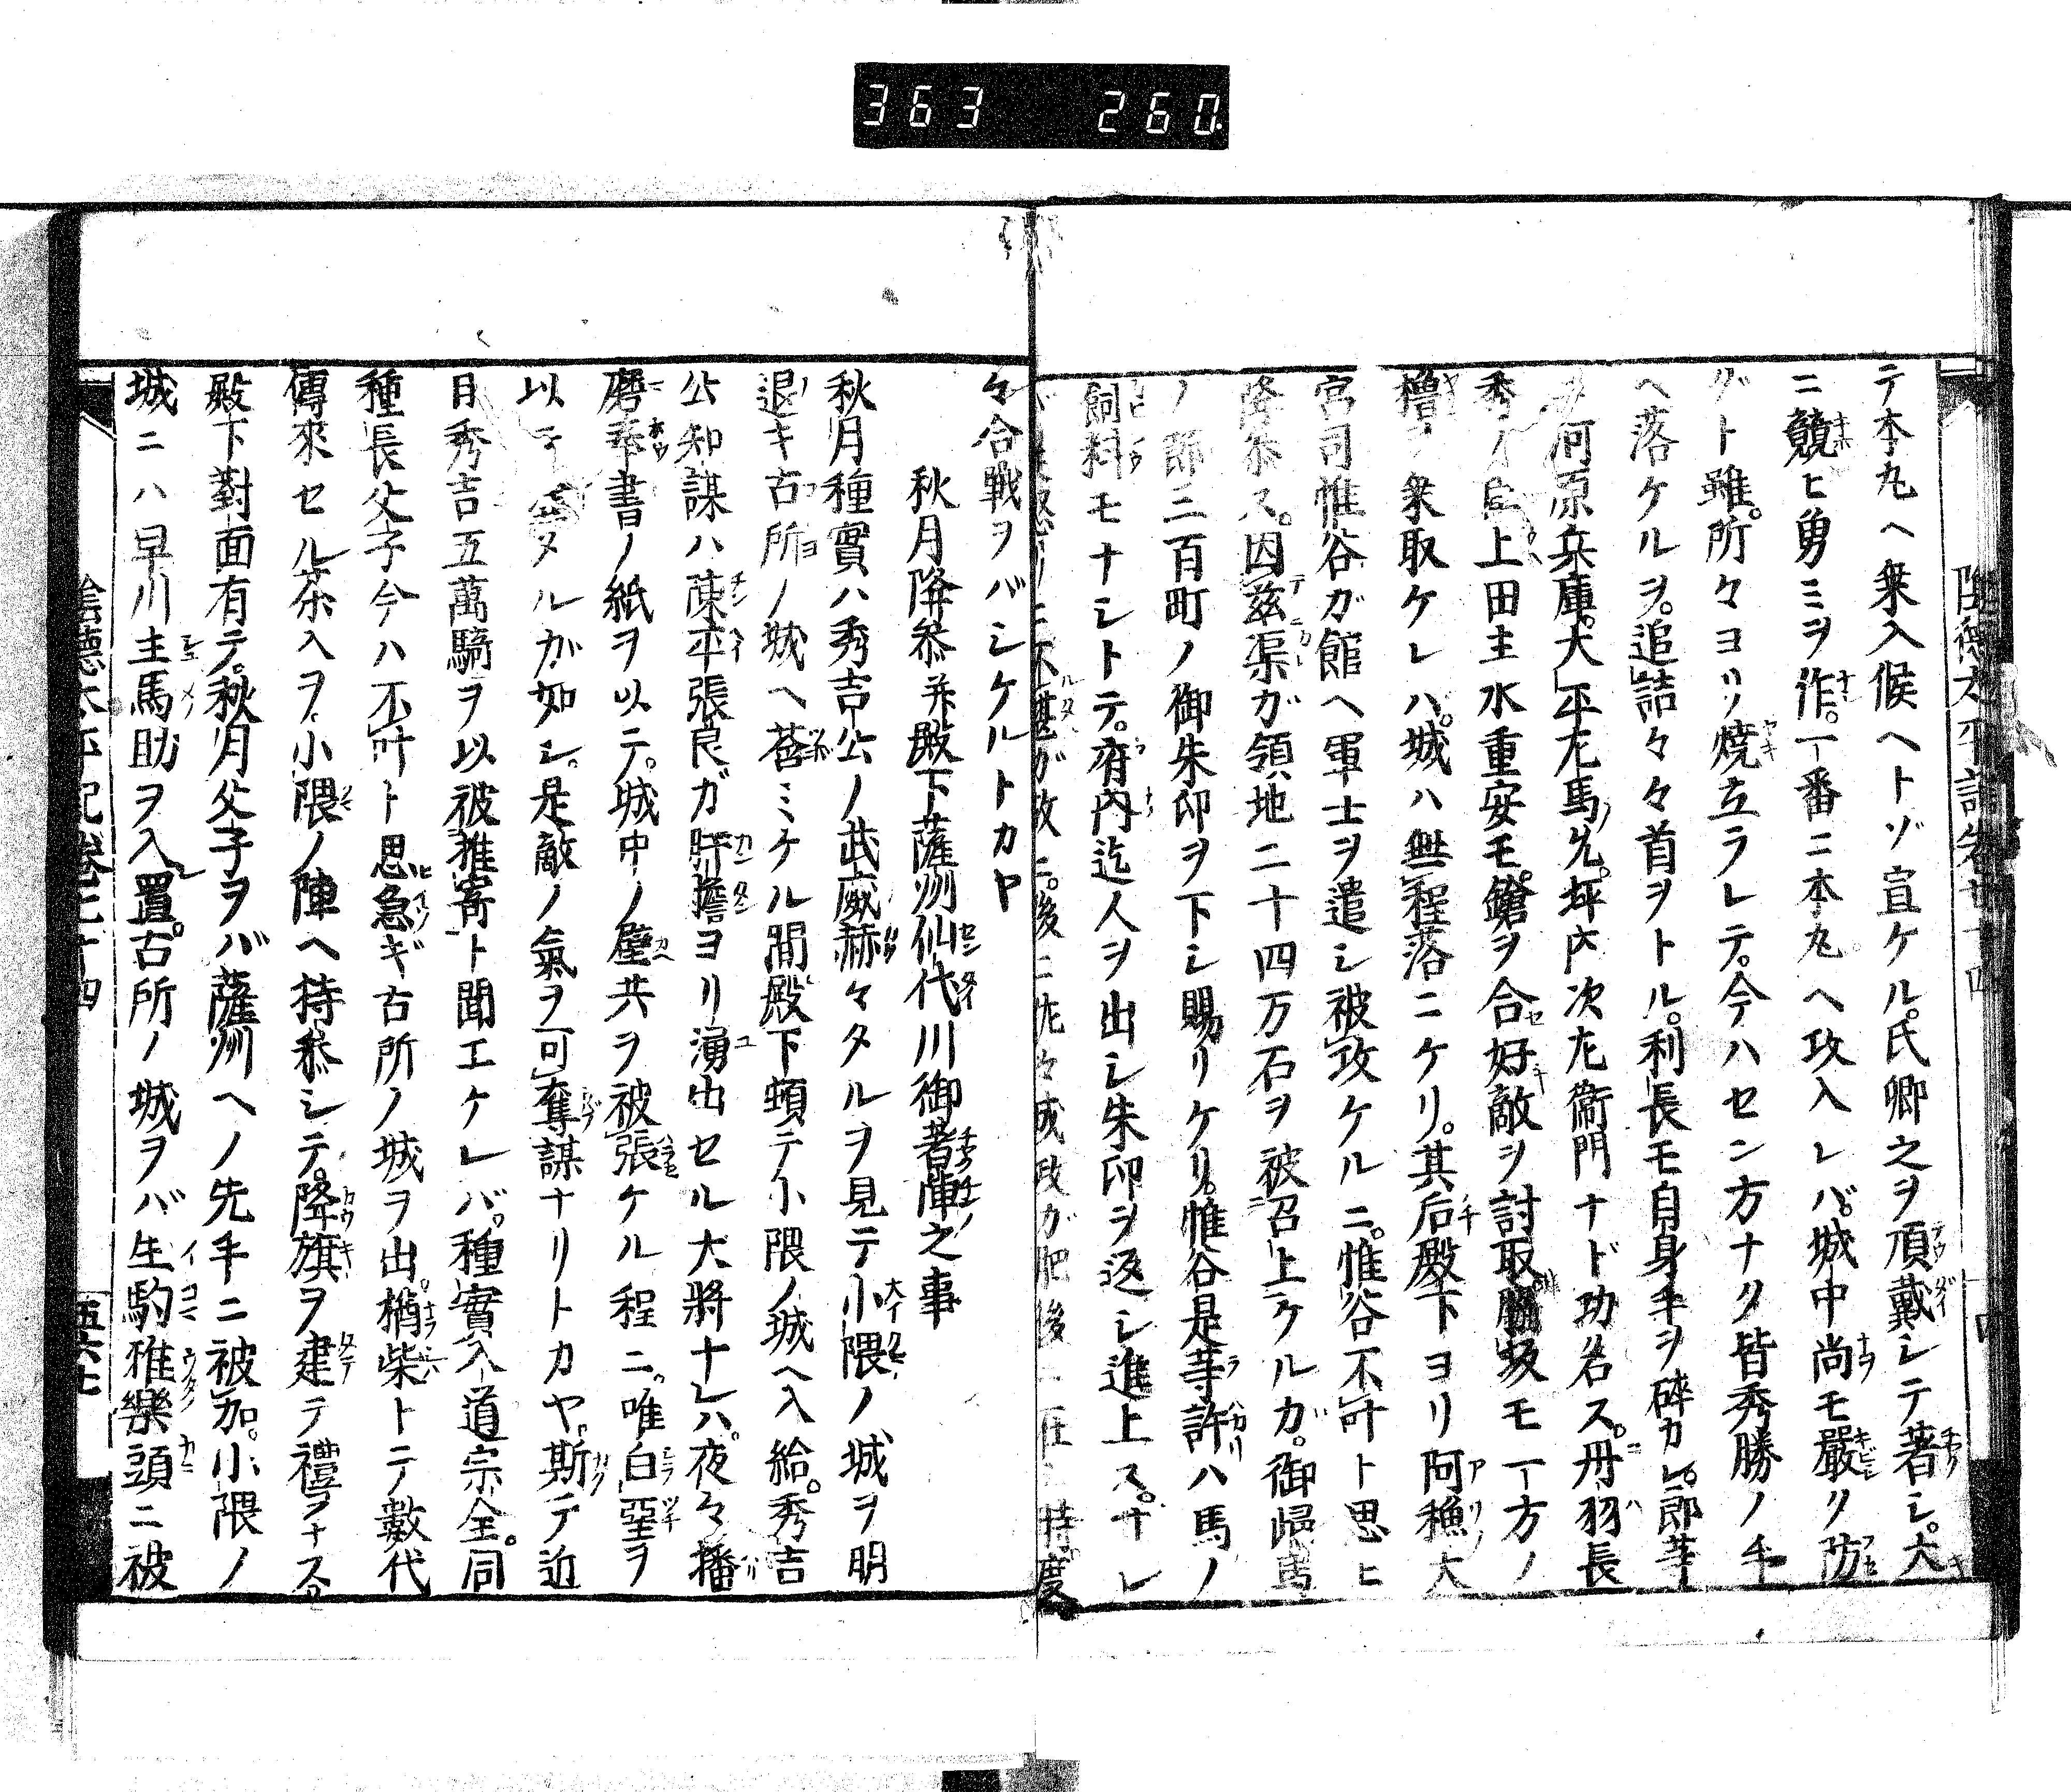 363 260
テ本丸ヘ乗入候ヘトゾ宣ケル。氏郷之ヲ頂戴シテ著シ。大
ニ競ヒ勇ミヲ作。一番ニ本丸ヘ攻入レバ。城中尚モ嚴ク防
グト雖。所々ヨリ燒立ラレテ。今ハセン方ナク皆秀勝ノ手
ヘ落ケルヲ。追詰々々首ヲトル。利長モ自身手ヲ碎カレ。郎等
河原兵庫。大平左馬允。坪内次左衛門ナド功名ス。丹羽長
秀ノ臣上田主水重安モ。鎗ヲ合セ好敵ヲ討取。脇坂モ一方ノ
櫓ヲ乗取ケレハ。城ハ無程落ニケリ。其后殿下ヨリ阿穐大
宮司惟谷ガ館ヘ軍士ヲ遣シ被攻ケルニ。惟谷不叶ト思ヒ
降参ス。因茲渠ガ領地二十四万石ヲ被召上ケルガ。御歸馬
ノ節三百町ノ御朱印ヲ下シ賜リケリ。惟谷是等許ハ馬ノ
飼料モナシトテ。府内迄人ヲ出シ朱印ヲ返シ進上ス。ナレ
々合戰ヲバシケルトカヤ
秋月降参并殿下薩洲仙代川御著陣之事
秋月種實ハ秀吉公ノ武威赫々タルヲ見テ小隈ノ城ヲ明
退キ古所ノ城ヘ莟ミケル間殿下頓テ小隈ノ城ヘ入給。秀吉
公知謀ハ陳平張良ガ肝膽ヨリ湧出セル大將ナレハ。夜々播
磨奉書ノ紙ヲ以テ。城中ノ壁共ヲ被張ケル程ニ。唯白堊ヲ
以テ塗タルガ如シ。是敵ノ氣ヲ可奪謀ナリトカヤ。斯テ近
日秀吉五萬騎ヲ以被推寄ト聞エケレバ。種實入道宗全。同
種長父子今ハ不叶ト思急ギ古所ノ城ヲ出。楢柴トテ數代
傳來セル茶入ヲ。小隈ノ陣ヘ持参シテ。降旗ヲ建テ禮ヲナス。
殿下對面有テ。秋月父子ヲバ薩州ヘノ先手ニ被加。小隈ノ
城ニハ早川主馬助ヲ入置。古所ノ城ヲバ生駒雅樂頭ニ被
陰德太平記卷七十四
五六七